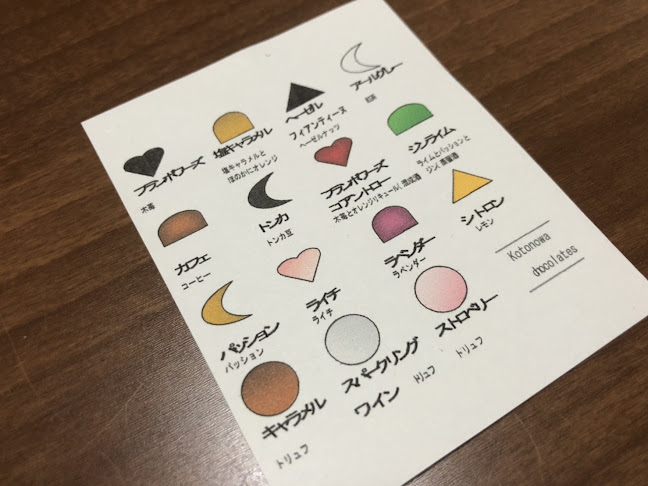 フランボワーズ
木苺
塩キャラメル
塩キャラメルと
ほのかにオレンジ
ヘーゼル
フィアンティーヌ
ヘーゼルナッツ
アールグレー
紅茶
カフェ
コーヒー
トンカ
トンカ豆
フランボワーズ
コアントロー
木苺とオレンジリキュール(混成酒
ジンライム
ライムとパッションと
ジン(蒸留酒
パッション
パッション
ライチ
ライチ
ラベンダー
ラベンダー
シトロン
レモン
キャラメル
トリュフ
スパークリング
ワイン
トリュフ
ストロベリー
トリュフ
Kotonowa
chocolates